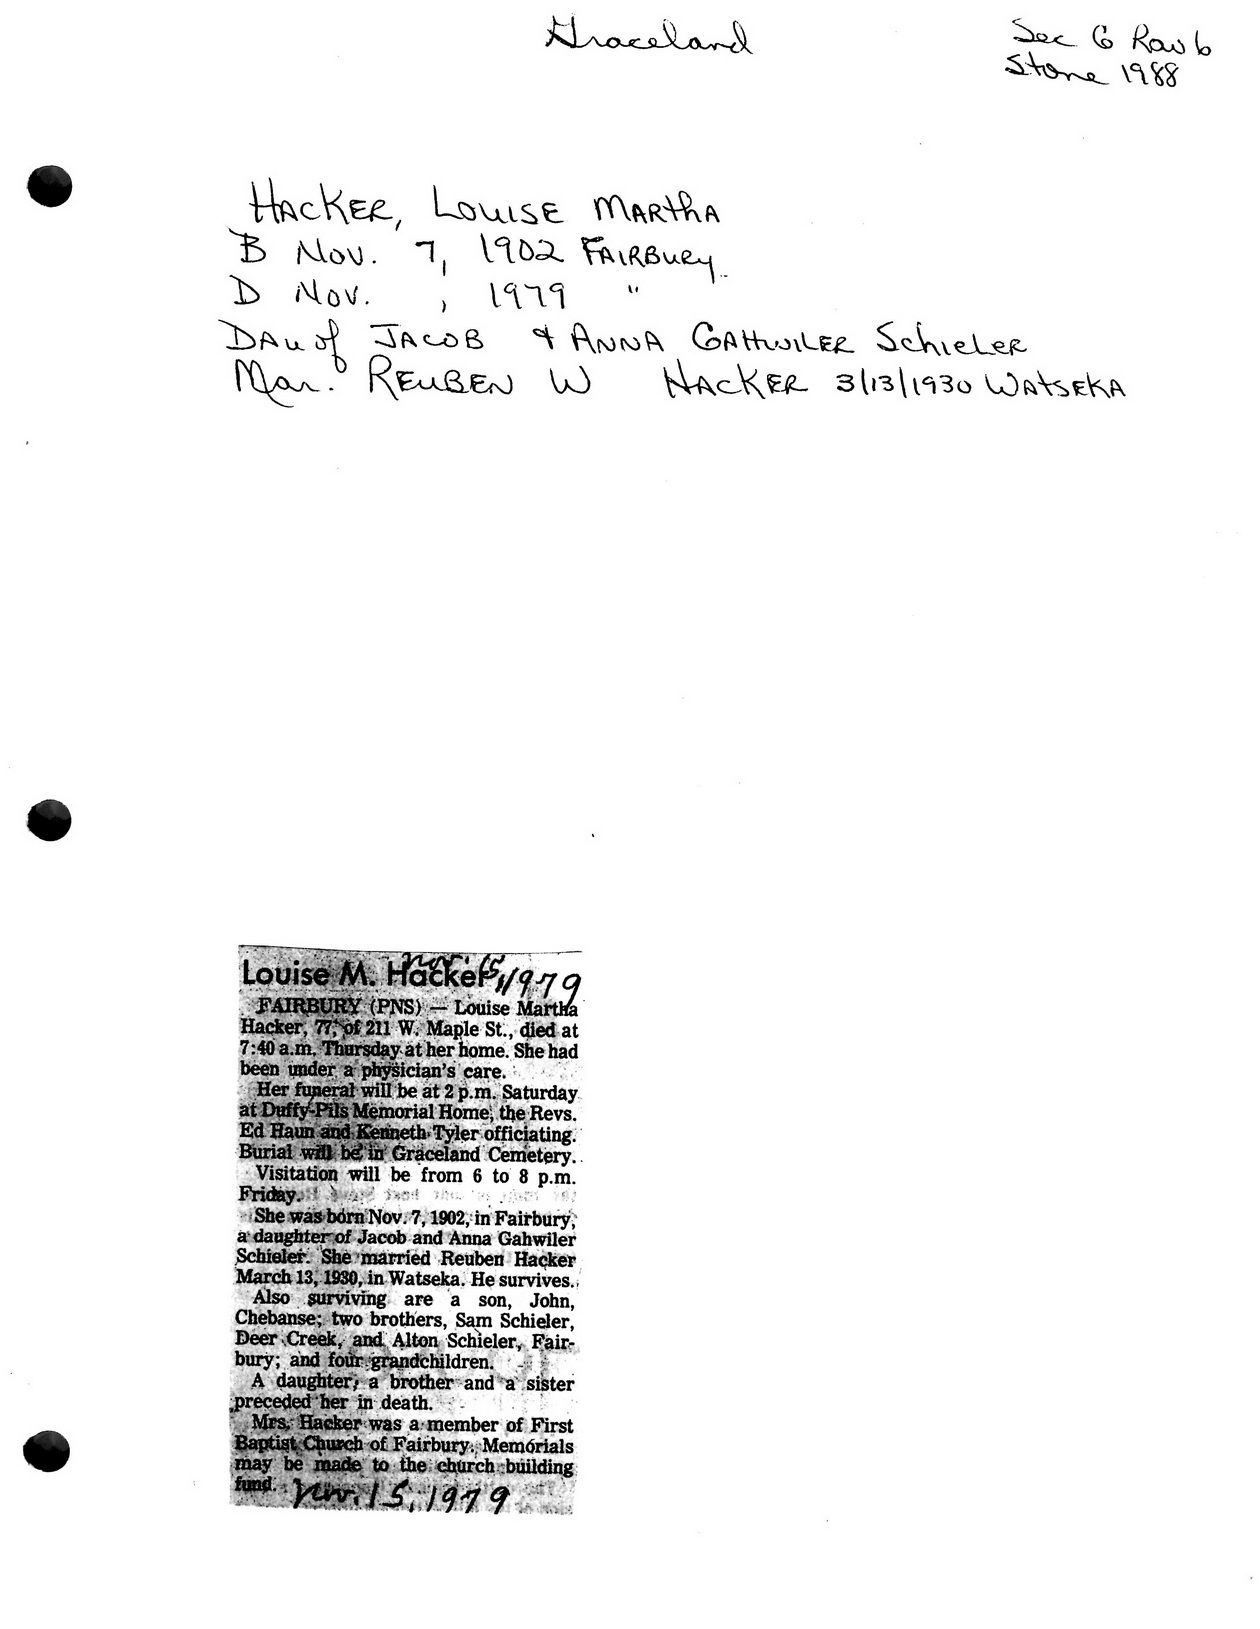 Graceland
Sec G Row 6
Stone 1988
HACKER, LOUISE MARTHA
B Nov. 7, 1902 FAIRBURY
D Nov. , 1979 "
DAU of JACOB & ANNA GAHWILER SchieLER
Mar. REUBEN W HACKER 3/13/1930 WATSEKA
Louise M. Hacker
Nov. 15, 1979
FAIRBURY (PNS) — Louise Martha
Hacker, 77, of 211 W. Maple St., died at
7:40 a.m. Thursday at her home. She had
been under a physician's care.
Her funeral will be at 2 p.m. Saturday
at Duffy-Pils Memorial Home, the Revs.
Ed Haun and Kenneth Tyler officiating.
Burial will be in Graceland Cemetery.
Visitation will be from 6 to 8 p.m.
Friday.
She was born Nov. 7, 1902, in Fairbury,
a daughter of Jacob and Anna Gahwiler
Schieler. She married Reuben Hacker
March 13, 1930, in Watseka. He survives.
Also surviving are a son, John,
Chebanse; two brothers, Sam Schieler,
Deer Creek, and Alton Schieler, Fair-
bury; and four grandchildren.
A daughter, a brother and a sister
preceded her in death.
Mrs. Hacker was a member of First
Baptist Church of Fairbury. Memorials
may be made to the church building
fund.
Nov. 15, 1979